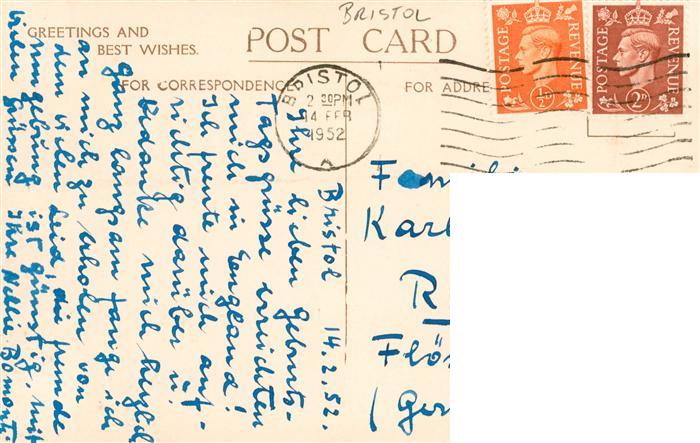 BRISTOL
GREETINGS AND
BEST WISHES.
POST CARD
FOR CORRESPONDENCE
FOR ADDRE
BRISTOL
2 30PM
14 FEB
1952
POSTAGE REVENUE
½D
POSTAGE REVENUE
2D
Bristol 14.2.52.
Ihre lieben Geburts-
tagsgrüsse erreichten
mich in England!
Ich freute mich auf-
richtig darüber u.
bedanke mich herzlich
Ganz langsam fange ich
an mich zu erholen von
dem vielen Leid, die fremde
Umgebung ist günstig, mit
vielen Grüssen Ihre Nellie
Famili
Karl
R
Flö
(Ger